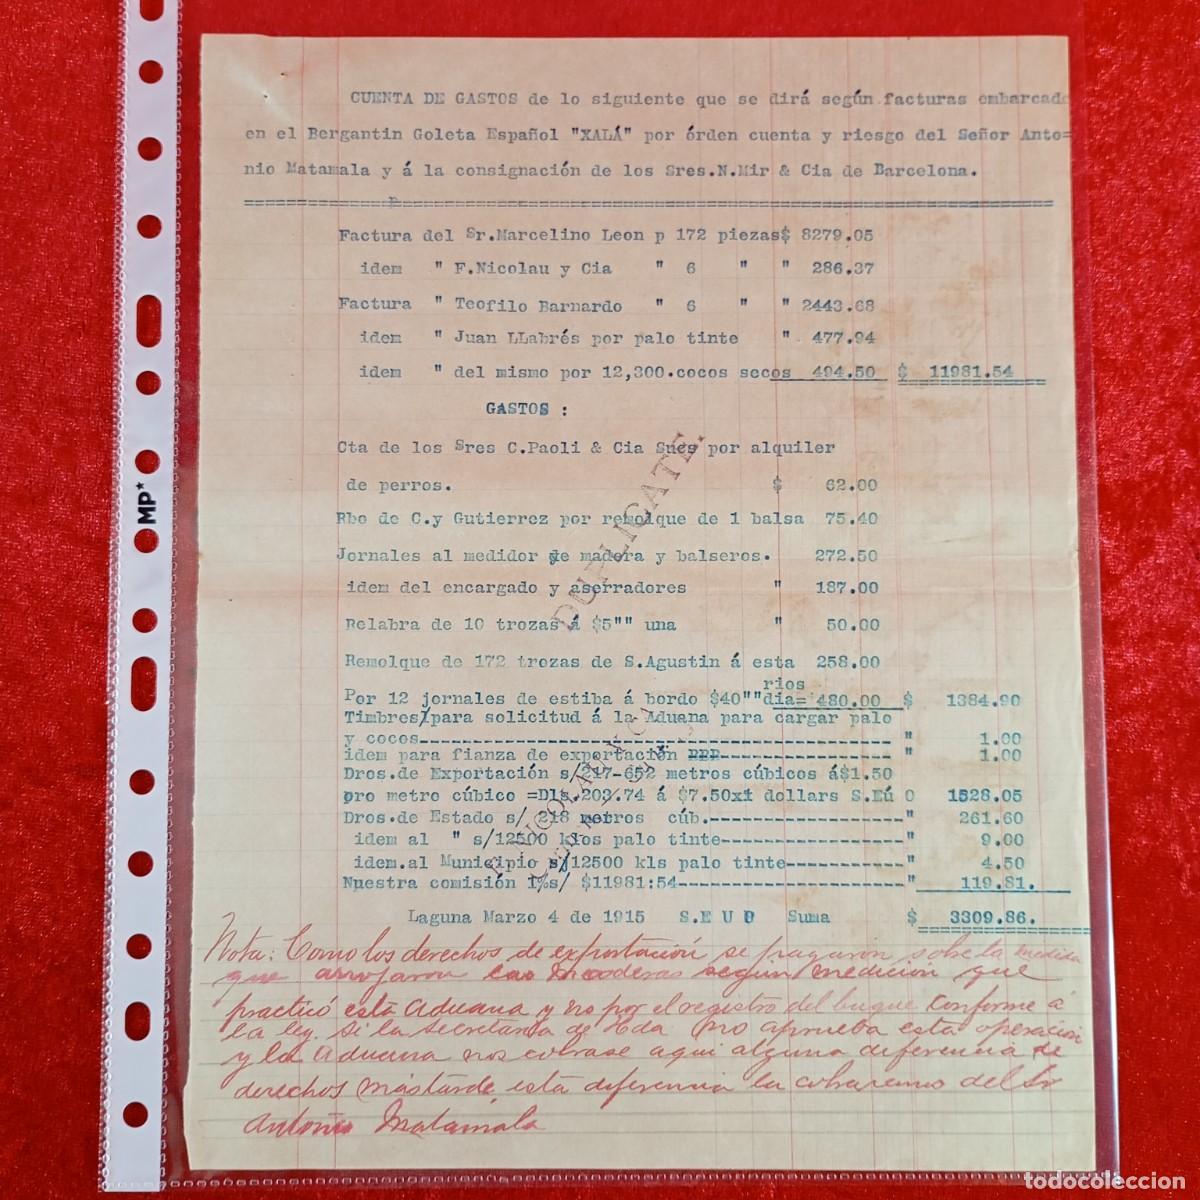 CUENTA DE GASTOS de lo siguiente que se dirá según facturas embarcad
en el Bergantin Goleta Español "XALÁ" por órden cuenta y riesgo del Señor Anto=
nio Matamala y á la consignación de los Sres.N.Mir & Cia de Barcelona.
Factura del Sr.Marcelino Leon p 172 piezas$ 8279.05
idem " F.Nicolau y Cia " 6 " " 286.37
Factura " Teofilo Barnardo " 6 " " 2443.68
idem " Juan LLabrés por palo tinte " 477.94
idem " del mismo por 12,300.cocos secos 494.50 $ 11981.54
GASTOS :
Cta de los Sres C.Paoli & Cia Sucs por alquiler
de perros. $ 62.00
Rbo de C.y Gutierrez por remolque de 1 balsa 75.40
Jornales al medidor de madera y balseros. 272.50
idem del encargado y aserradores " 187.00
Relabra de 10 trozas á $5"" una " 50.00
Remolque de 172 trozas de S.Agustin á esta 258.00
rios
Por 12 jornales de estiba á bordo $40""dia= 480.00 $ 1384.90
Timbres/para solicitud á la Aduana para cargar palo
y cocos------------------------------------------- " 1.00
idem para fianza de exportación PPP--------------- " 1.00
Dros.de Exportación s/217-652 metros cúbicos á$1.50
pro metro cúbico =Dls.203/74 á $7.50x1 dollars S.EÚ O 1528.05
Dros.de Estado s/ 218 metros cúb.------------------" 261.60
idem al " s/12500 klos palo tinte-----------------" 9.00
idem.al Municipio s/12500 kls palo tinte-----------" 4.50
Nuestra comisión 1%s/ $11981:54---------------------" 119.81.
Laguna Marzo 4 de 1915 S.E U O Suma $ 3309.86.
DUPLICATE.
Nota: Como los derechos de exportación se pagaron sobre la medida
que arrojaron las maderas segun medición que
practicó esta Aduana y no por el registro del buque conforme á
la ley. Si la Secretaria de Hda no aprueba esta operación
y la Aduana nos cobrase aqui alguna diferencia de
derechos mas tarde, esta diferencia la cobraremos del Sr
Antonio Matamala
MP*
todocoleccion